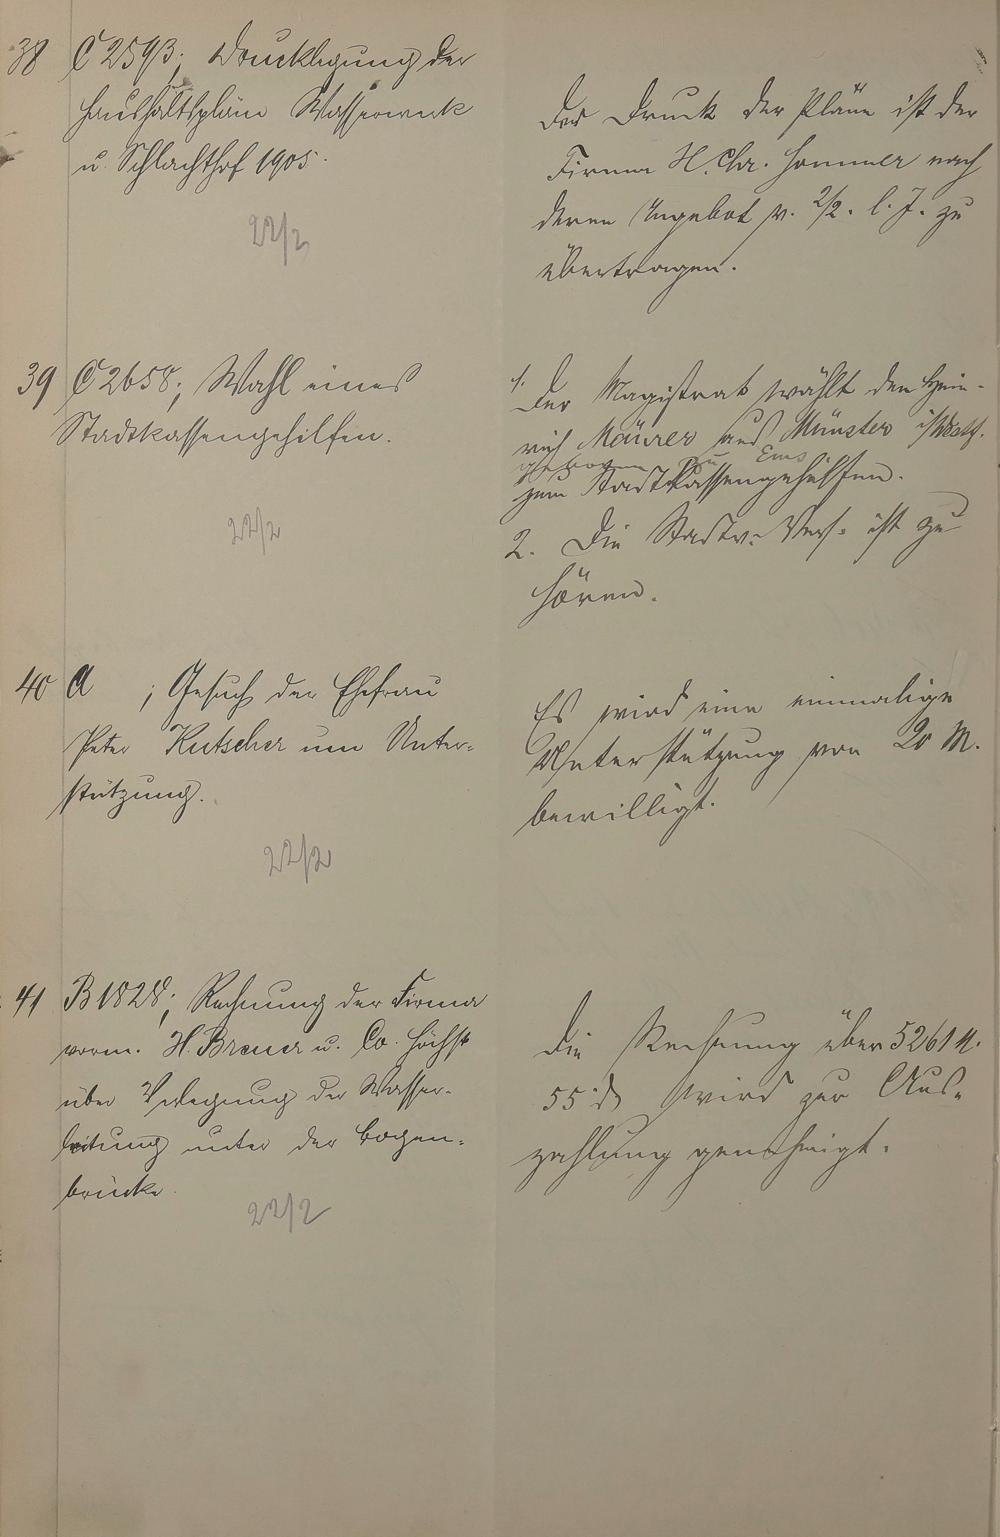 38 C 2593; Drucklegung der
Haushaltspläne Wasserwerk
u. Schlachthof 1905.
22/2
Der Druck der Pläne ist der
Firma H. Chr. Sommer nach
deren Angebot v. 2/2. l. J. zu
übertragen.
39 C 2658; Wahl eines
Stadtkassengehilfen.
22/2
1. Der Magistrat wählt den Hein-
rich Mäurer aus Münster i/Westf.
geboren zu Ems
zum Stadtkassengehülfen.
2. Die Stadtv.-Vers. ist zu
hören.
40 A ; Gesuch der Ehefrau
Peter Kutscher um Unter-
stützung.
22/2
Es wird eine einmalige
Unterstützung von 20 M.
bewilligt.
41 B 1828; Rechnung der Firma
vorm. H. Breuer u. Co. Höchst
über Verlegung der Wasser-
leitung unter der Bogen-
brücke.
22/2
Die Rechnung über 5261 M.
55 ₰ wird zur Aus-
zahlung genehmigt.